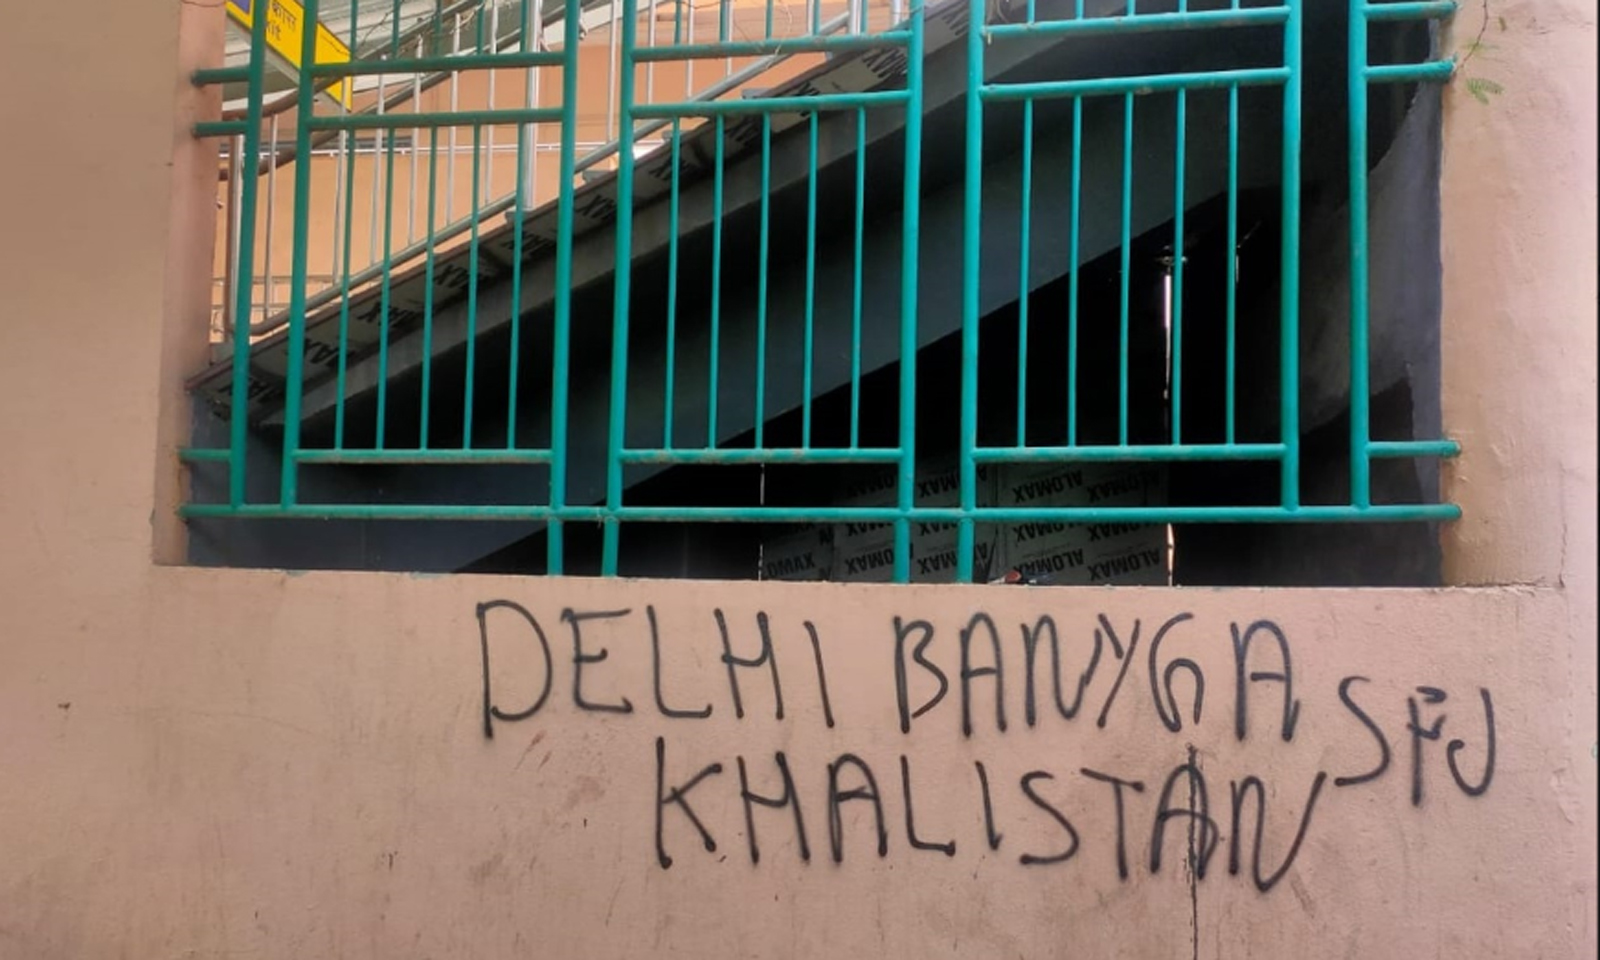 कास
it
ALOMAX ALOMAX
ALOMAX ALOMAX ALOMAX ALOMAX
DELHI BANYGA
SFJ
KHALISTAN